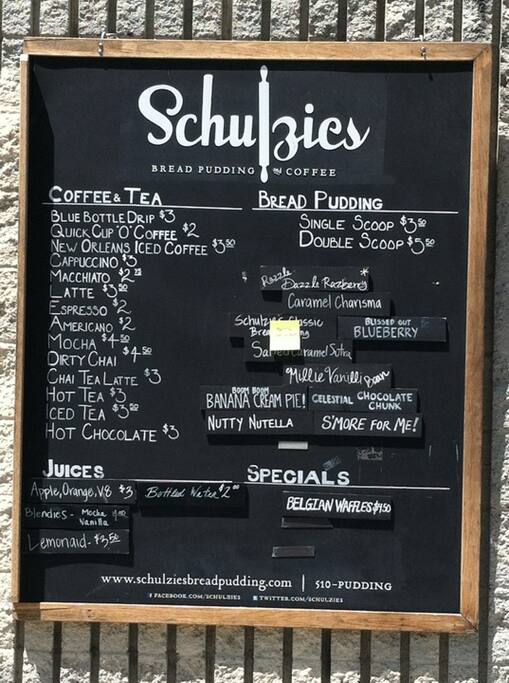 Schulzies
BREAD PUDDING on COFFEE
COFFEE & TEA
BLUE BOTTLE DRIP $3
QUICK CUP 'O' COFFEE $2
NEW ORLEANS ICED COFFEE $3.50
CAPPUCCINO $3
MACCHIATO $2.75
LATTE $3.50
ESPRESSO $2
AMERICANO $2
MOCHA $4.50
DIRTY CHAI $4.50
CHAI TEA LATTE $3
HOT TEA $3
ICED TEA $3.50
HOT CHOCOLATE $3
BREAD PUDDING
SINGLE SCOOP $3.50
DOUBLE SCOOP $5.50
Razzle
Dazzle Razberry*
Caramel Charisma
Schulzie's Classic
BLISSED OUT
BLUEBERRY
Salted Caramel Sutra
Millie Vanilli Bean
BOOM BOOM
BANANA CREAM PIE!
CELESTIAL CHOCOLATE
CHUNK
NUTTY NUTELLA
S'MORE FOR ME!
JUICES
Apple, Orange, V8 $3
Bottled Water $2.00
Blendies - Mocha
Vanilla
Lemonaid - $3.50
SPECIALS
BELGIAN WAFFLES $4.50
www.schulziesbreadpudding.com | 510-PUDDING
f FACEBOOK.COM/SCHULZIES
TWITTER.COM/SCHULZIES